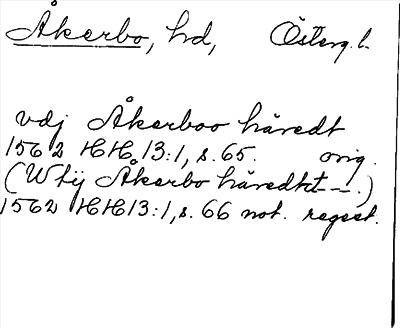 Åkerbo, hd, Österg. l.
vdj Åkerboo häredt
1562 HH 13:1, s. 65. orig.
(Wtij Åkerbo häredtt --.)
1562 HH 13:1, s. 66 not. regest.